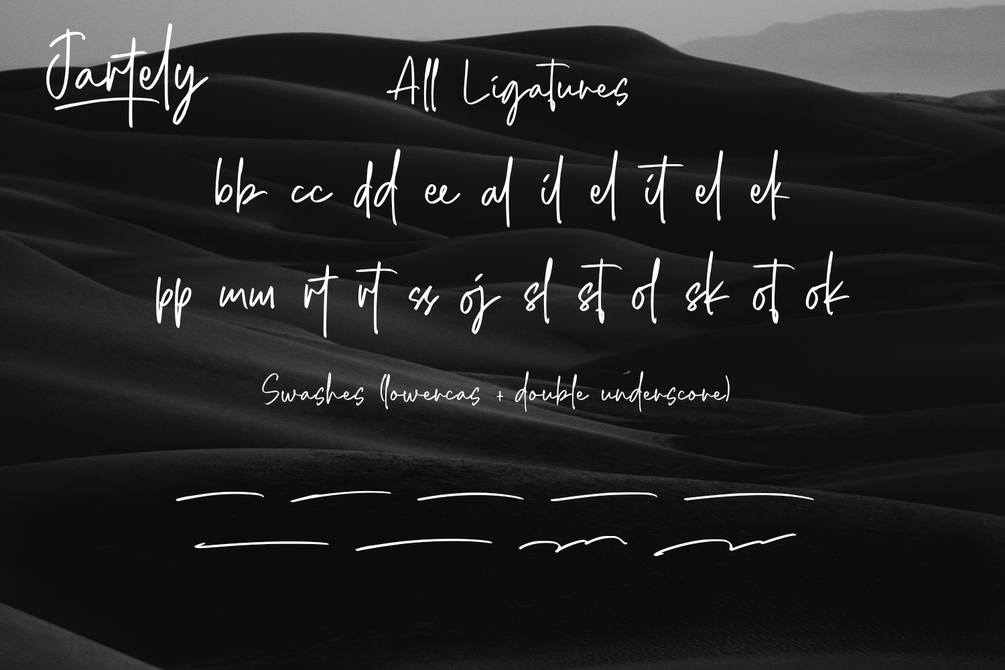 Jartely
All Ligatures
bb cc dd ee al il el it el ek
pp mm rt rt ss oj sl st ol sk ot ok
Swashes (lowercas + double underscore)